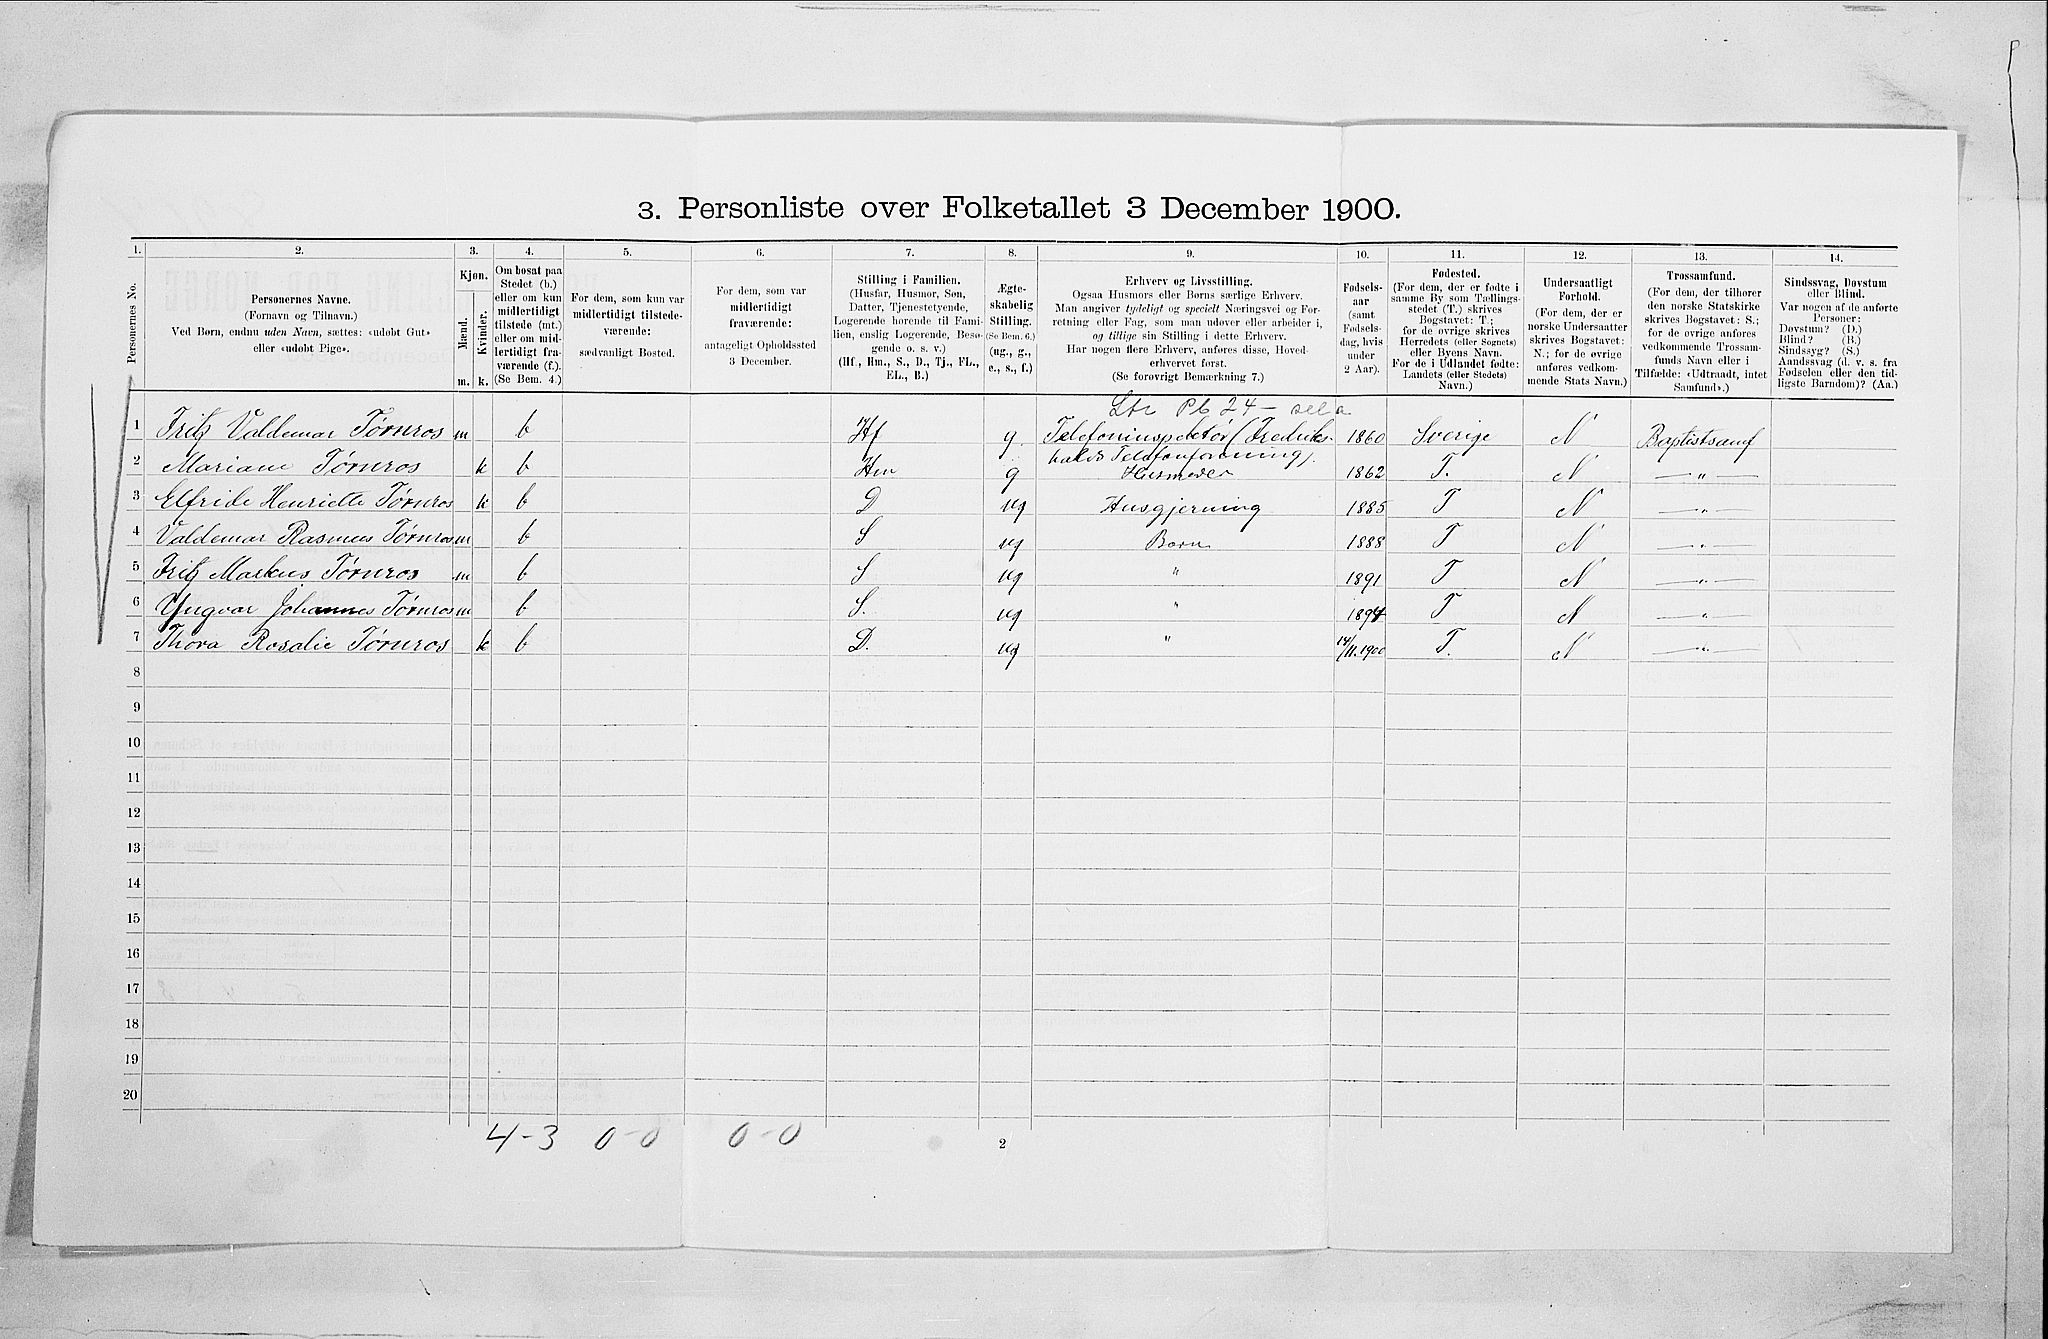 3. Personliste over Folketallet 3 December 1900.
1. 2. 3. 4. 5. 6. 7. 8. 9. 10. 11. 12. 13. 14.
Personernes No.
Personernes Navne.
(Fornavn og Tilnavn.)
Ved Børn, endnu uden Navn, sættes: «udøbt Gut»
eller «udøbt Pige».
Kjøn.
Mænd.
Kvinder.
m. k.
Om bosat paa
Stedet (b.)
eller om kun
midlertidigt
tilstede (mt.)
eller om mid-
lertidigt fra-
værende (f.).
(Se Bem. 4.)
For dem, som kun var
midlertidigt tilstede-
værende:
sædvanligt Bosted.
For dem, som var
midlertidigt
fraværende:
antageligt Opholdssted
3 December.
Stilling i Familien.
(Husfar, Husmor, Søn,
Datter, Tjenestetyende,
Logerende hørende til Fami-
lien, enslig Logerende, Besø-
gende o. s. v.)
(Hf., Hm., S., D., Tj., FL.,
EL., B.)
Ægte-
skabelig
Stilling.
(Se Bem. 6.)
(ug., g.,
e., s., f.)
Erhverv og Livsstilling.
Ogsaa Husmors eller Børns særlige Erhverv.
Man angiver tydeligt og specielt Næringsvei og For-
retning eller Fag, som man udøver eller arbeider i,
og tillige sin Stilling i dette Erhverv.
Har nogen flere Erhverv, anføres disse, Hoved-
erhvervet først.
(Se forøvrigt Bemærkning 7.)
Fødsels-
aar
(samt
Fødsels-
dag, hvis
under
2 Aar).
Fødested.
(For dem, der er fødte i
samme By som Tællings-
stedet (T.) skrives
Bogstavet: T.;
for de øvrige skrives
Herredets (eller Sognets)
eller Byens Navn.
For de i Udlandet fødte:
Landets (eller Stedets)
Navn.)
Undersaatligt
Forhold.
(For dem, der er
norske Undersaatter
skrives Bogstavet:
N.; for de øvrige
anføres vedkom-
mende Stats Navn.)
Trossamfund.
(For dem, der tilhører
den norske Statskirke
skrives Bogstavet: S.;
for de øvrige anføres
vedkommende Trossam-
funds Navn eller i
Tilfælde: «Udtraadt, intet
Samfund».)
Sindssvag, Døvstum
eller Blind.
Var nogen af de anførte
Personer:
Døvstum? (D.)
Blind? (B.)
Sindssyg? (S.)
Aandssvag (d. v. s. fra
Fødselen eller den tid-
ligste Barndom)? (Aa.)
Pb 24 –
1 Fritz Valdemar Tørnros m b Hf g. Telefoninspektør (Fredriks- 1860 Sverige N Baptistsamf
halds Telefonforening).
2 Mariane Tørnros k b Hm g Husmoder 1862 T. N — „ —
3 Elfride Henriette Tørnros k b D ug Husgjerning 1885 T N — „ —
4 Valdemar Rasmus Tørnros m b S ug Barn 1888 T N — „ —
5 Fritz Markus Tørnros m b S ug " 1891 T N — „ —
6 Yngvar Johannes Tørnros m b S. ug " 1894 T N — „ —
7 Thora Rosalie Tørnros k b D. ug " 14/11.1900 T. N — „ —
8
9
10
11
12
13
14
15
16
17
18
19
20
4-3 0-0 0-0
2